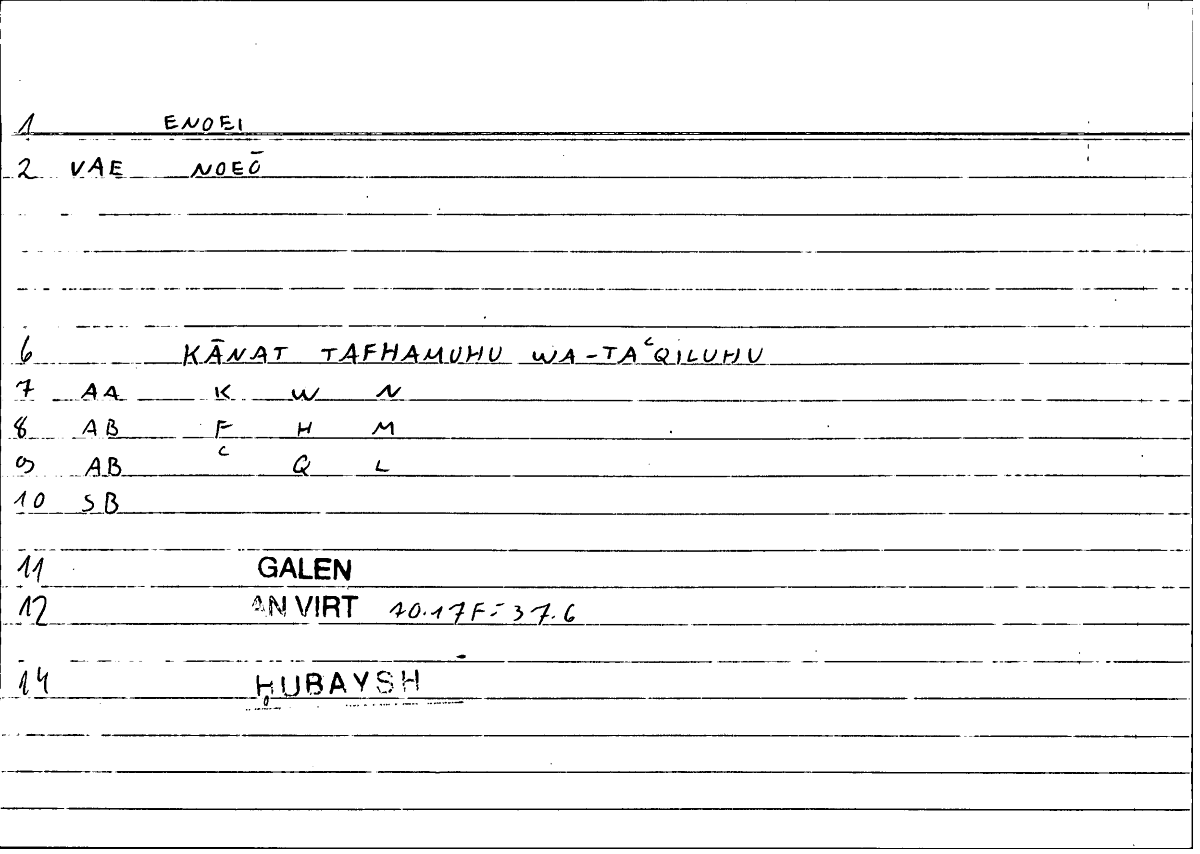 1 ENOEI
2 VAE NOEŌ
6 KĀNAT TAFHAMUHU WA-TAʿQILUHU
7 AA K W N
8 AB F H M
9 AB ʿ Q L
10 SB
11 GALEN
12 AN VIRT 40.17F = 37.6
14 ḤUBAYSH